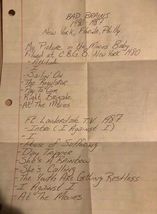 BAD BRAINS
1980 1987
New York, Florida, Philly
My Picture in the Movies Baby
Attitude at C.B.G.B. New York - 1980
- Attitude
- I
- Sailin' On
- The Regulator
- Pay To Cum
- Right Brigade
- At The Movies
Ft. Lauderdale T.V. 1987
- Intro (I Against I)
- House of Suffering
- Day Tripper
- She's A Rainbow
- She's Calling
- The Youth Are Getting Restless
- I Against I
- At The Movies